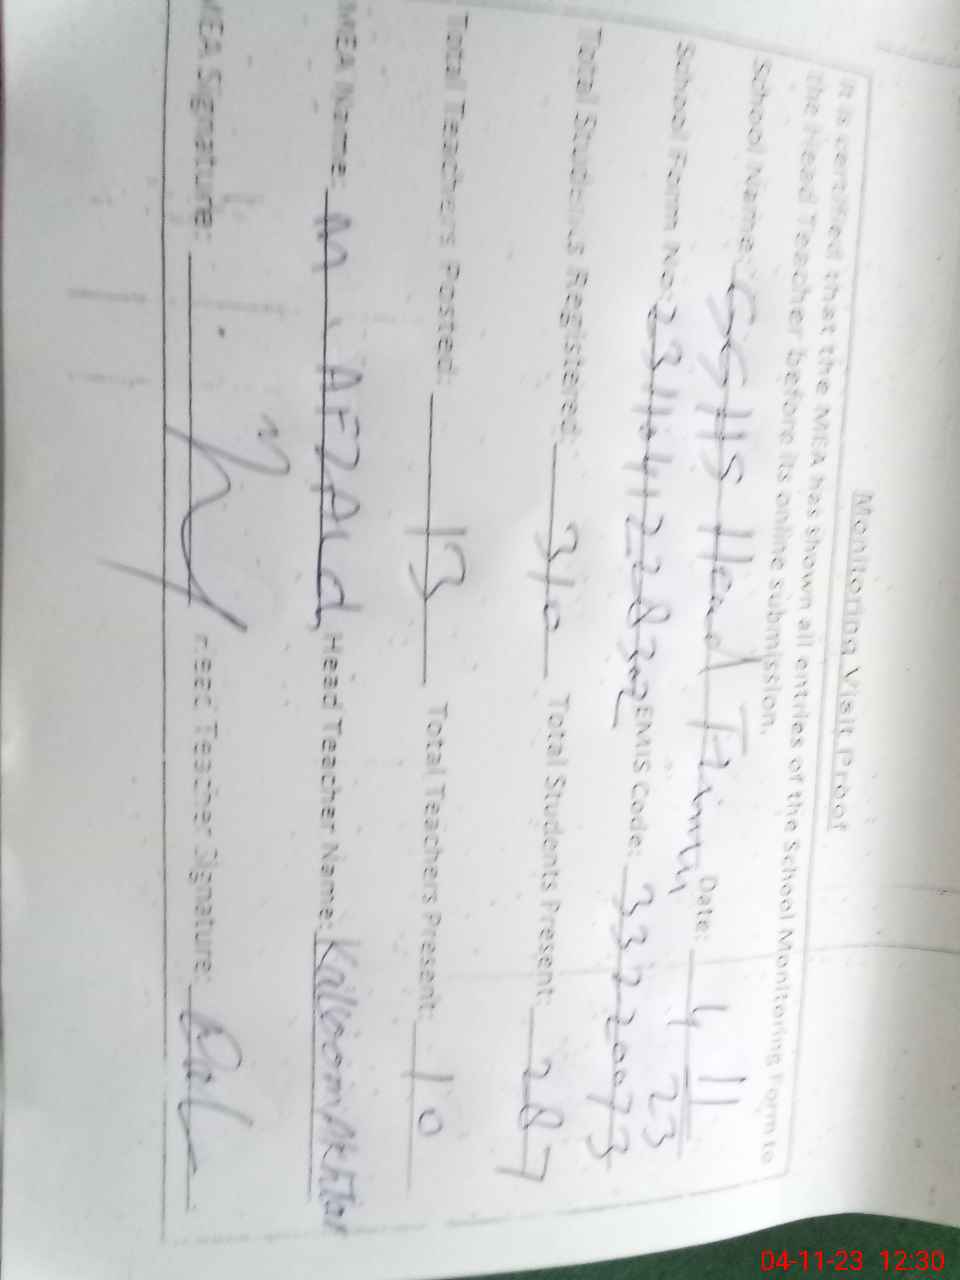 Monitoring Visit Proof
It is certified that the MEA has shown all entries of the School Monitoring Form to
the Head Teacher before its online submission.
School Name: GGHS Head Date: 4/11/23
School Form No: EMIS Code: 33220073
Total Students Registered: 310 Total Students Present: 287
Total Teachers Posted: 13 Total Teachers Present: 10
MEA Name: M. AFZAL Head Teacher Name: Kalsoom Akhtar
MEA Signature: Head Teacher Signature:
04-11-23 12:30